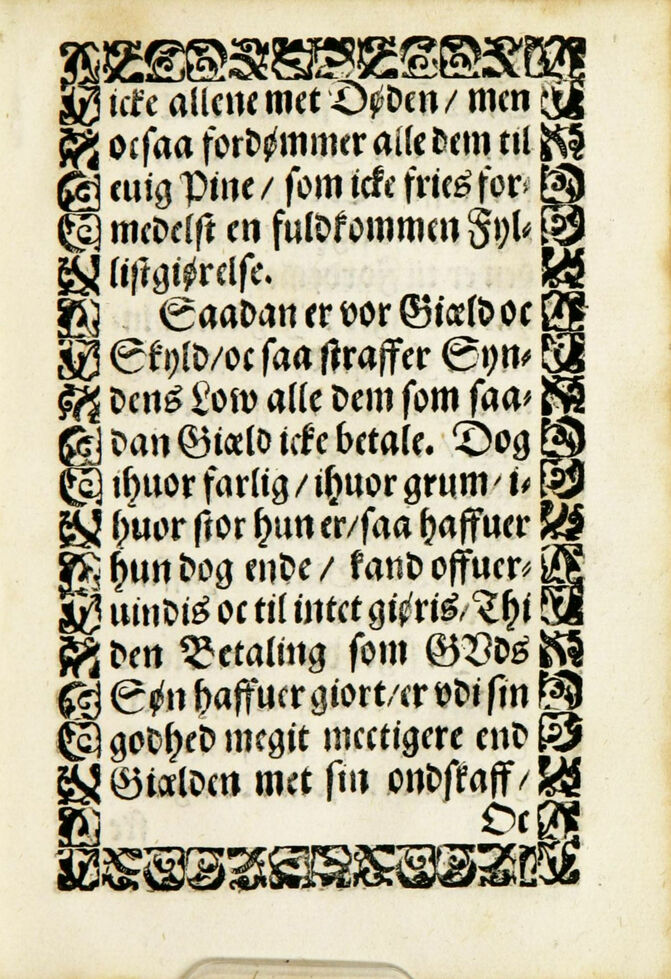 icke allene met Døden / men
ocsaa fordømmer alle dem til
euig Pine / som icke fries for⸗
medelst en fuldkommen Fyl⸗
listgiørelse.
Saadan er vor Giæld oc
Skyld/oc saa straffer Syn⸗
dens Low alle dem som saa⸗
dan Giæld icke betale. Dog
ihuor farlig / ihuor grum / i⸗
huor stor hun er/saa haffuer
hun dog ende / kand offuer⸗
uindis oc til intet giøris/Thi
den Betaling som GVds
Søn haffuer giort/er vdi sin
godhed megit mectigere end
Giælden met sin ondskaff /
Oc